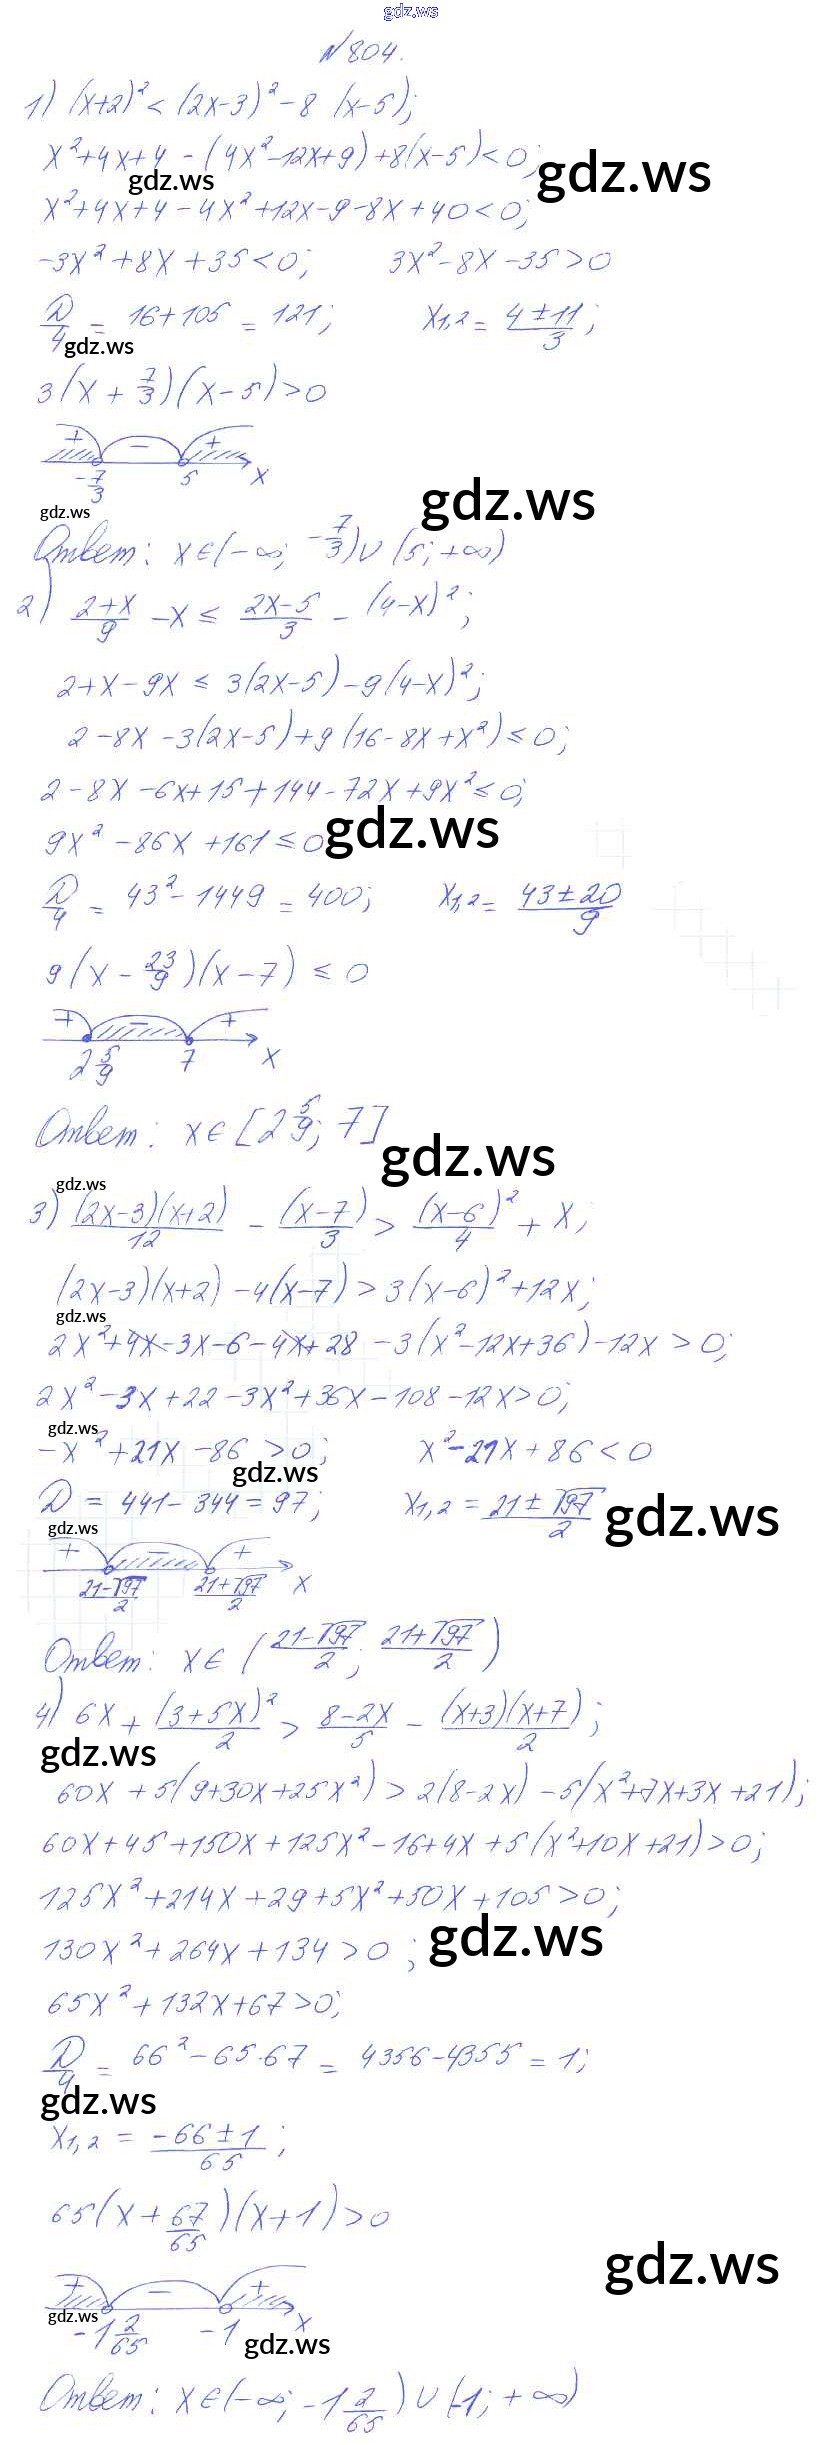 gdz.ws
N804.
1) (x+2)² < (2x-3)² - 8 (x-5);
x²+4x+4 - (4x²-12x+9)+8(x-5)<0;
gdz.ws
gdz.ws
x²+4x+4-4x²+12x-9-8x+40<0;
-3x²+8x+35<0; 3x²-8x-35>0
D/4 = 16+105 = 121; x1,2 = (4±11)/3;
gdz.ws
3(x + 7/3)(x-5)>0
+ − +
-7/3 5 x
gdz.ws
gdz.ws
Ответ: x∈(-∞; -7/3)∪(5; +∞)
2) (2+x)/9 - x ≤ (2x-5)/3 - (4-x)²;
2+x-9x ≤ 3(2x-5)-9(4-x)²;
2-8x-3(2x-5)+9(16-8x+x²)≤0;
2-8x-6x+15+144-72x+9x²≤0;
9x²-86x+161≤0
gdz.ws
D/4 = 43²-1449 = 400; x1,2 = (43±20)/9
9(x - 23/9)(x-7) ≤ 0
+ − +
2 5/9 7 x
Ответ: x∈[2 5/9; 7]
gdz.ws
gdz.ws
3) (2x-3)(x+2)/12 - (x-7)/3 > (x-6)²/4 + x;
(2x-3)(x+2)-4(x-7)>3(x-6)²+12x;
gdz.ws
2x²+4x-3x-6-4x+28-3(x²-12x+36)-12x>0;
2x²-3x+22-3x²+36x-108-12x>0;
gdz.ws
-x²+21x-86>0; x²-21x+86<0
gdz.ws
D = 441-344=97; x1,2 = (21±√97)/2
gdz.ws
gdz.ws
+ − +
(21-√97)/2 (21+√97)/2 x
Ответ: x∈((21-√97)/2; (21+√97)/2)
4) 6x + (3+5x)²/2 > (8-2x)/5 - (x+3)(x+7)/2;
gdz.ws
60x+5(9+30x+25x²)>2(8-2x)-5(x²+7x+3x+21);
60x+45+150x+125x²-16+4x+5(x²+10x+21)>0;
125x²+214x+29+5x²+50x+105>0;
130x²+264x+134>0;
gdz.ws
65x²+132x+67>0;
D/4 = 66²-65·67 = 4356-4355=1;
gdz.ws
x1,2 = (-66±1)/65;
65(x + 67/65)(x+1)>0
gdz.ws
+ − +
gdz.ws
-1 2/65 -1 x
gdz.ws
Ответ: x∈(-∞; -1 2/65)∪(-1; +∞)